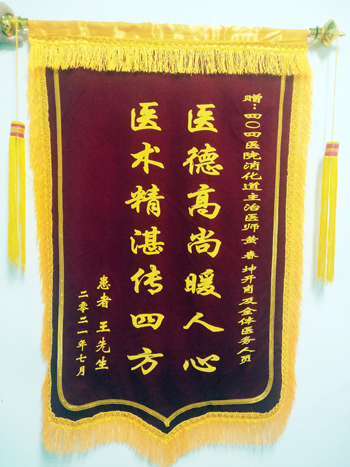 赠：四〇四医院消化道主治医师黄春坤开甫及全体医务人员
医德高尚暖人心
医术精湛传四方
患者 王先生
二零二一年七月